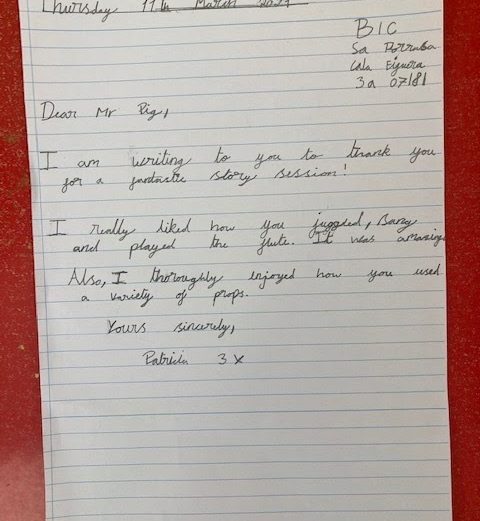 Thursday 11th March 2021
BIC
Sa Porrasa
Cala Figuera
3a 07181
Dear Mr Pig,
I am writing to you to thank you
for a fantastic story session!
I really liked how you juggled, sang
and played the flute. It was amazing
Also, I thoroughly enjoyed how you used
a variety of props.
Yours sincerely,
Patricia 3x